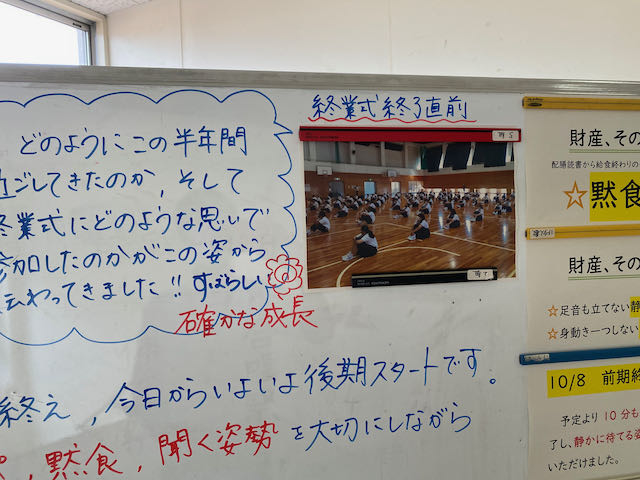 どのようにこの半年間
過ごしてきたのか、そして
終業式にどのような思いで
参加したのかがこの姿から
伝わってきました!! すばらしい
確かな成長
終業式終了直前
終え、今日からいよいよ後期スタートです。
黙食、聞く姿勢を大切にしながら
財産、その
配膳読書から給食終わりの
☆黙食
財産、その
☆足音も立てない静
☆身動き一つしない
10/8 前期終
予定より10分も
了し、静かに待てる姿
いただけました。